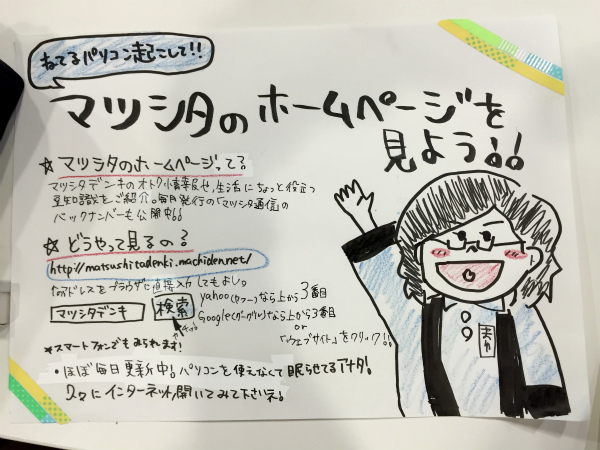 ねてるパソコン起こして!!
マツシタのホームページを
見よう!!
☆マツシタのホームページって?
マツシタデンキのオトク情報や、生活にちょっと役立つ
豆知識をご紹介。毎月発行の「マツシタ通信」の
バックナンバーも公開中!!
☆どうやって見るの?
http://matsushitadenki.machiden.net/
なアドレスをブラウザに直接入力してもよし。
マツシタデンキ 検索
yahoo(ヤフー)なら上から3番目
Google(グーグル)なら上から3番目
or
「ウェブサイト」をクリック!!
*スマートフォンでもみられます!
・ほぼ毎日更新中!パソコンを使えなくて眠らせてるアナタ!
久々にインターネット開いてみて下さいネ!